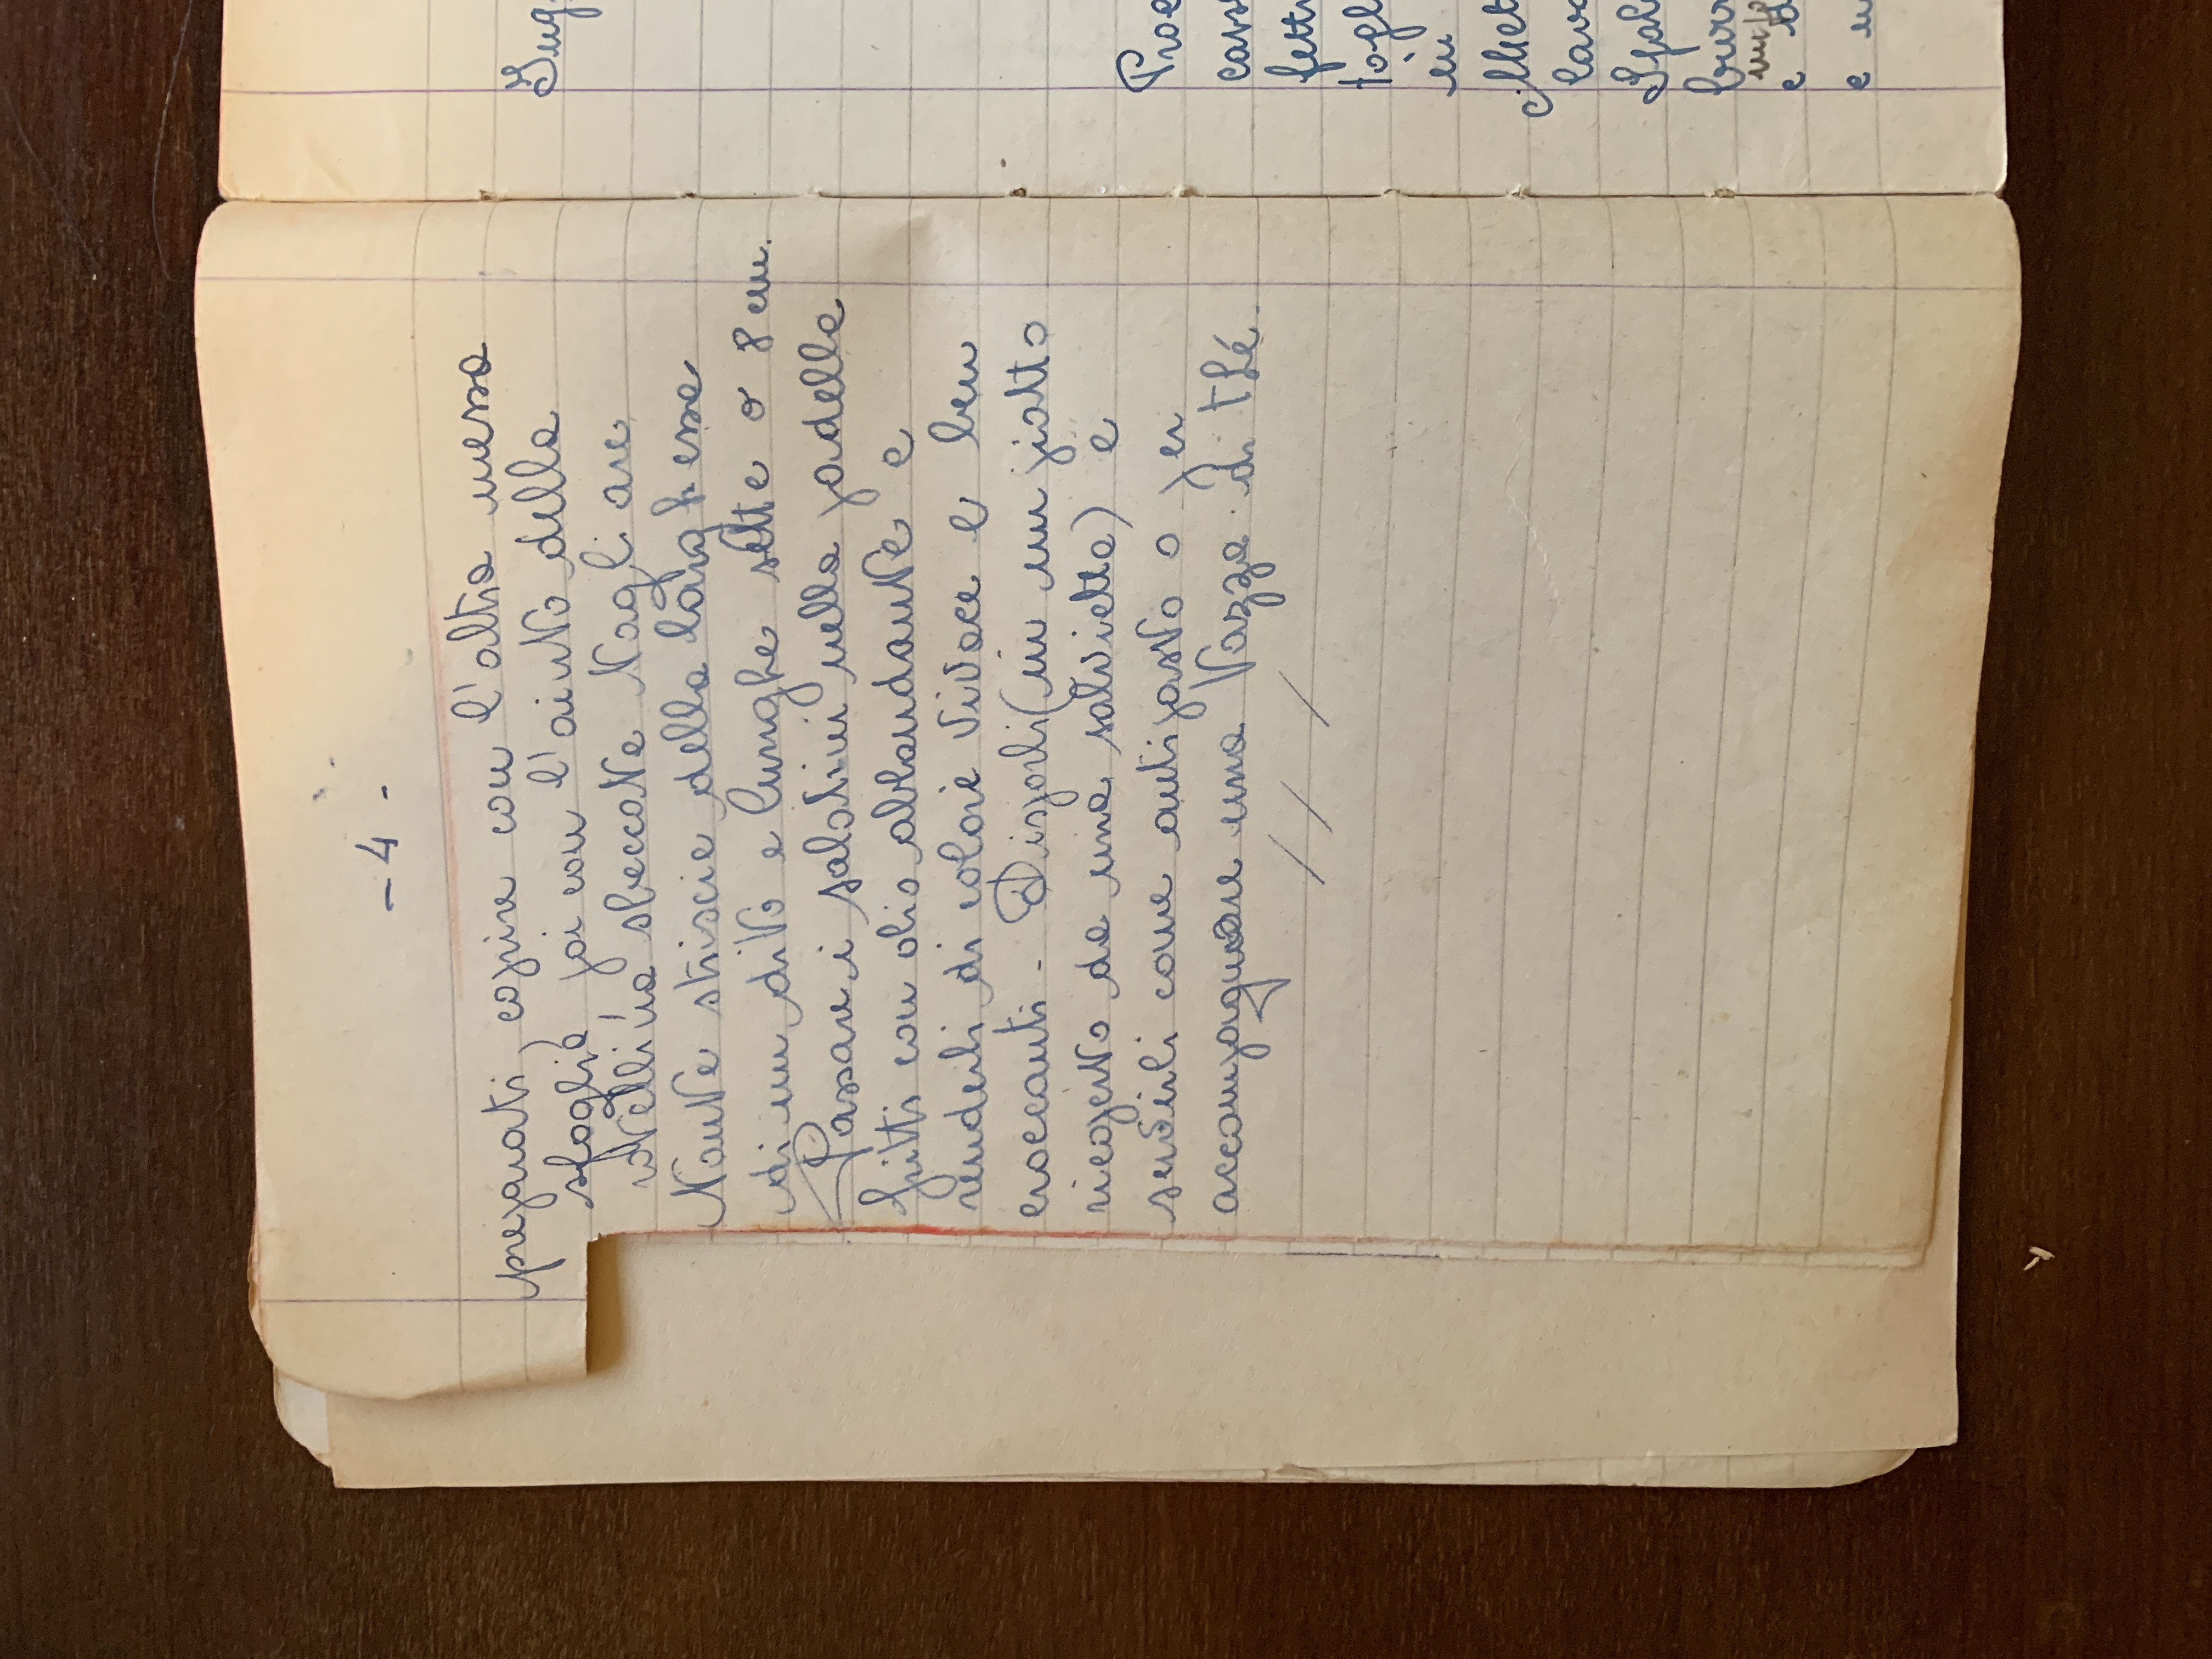 - 4 -
preparati, coprire con l'altra messa
sfoglia, poi con l'aiuto della
rotellina sbeccate tagliare
tante striscie della larghessa
di un dito e lunghe sette o 8 cm.
Passare i salatini nella padella
fritti con olio abbondante e
renderli di colore vivace e ben
croccanti - Disporli (in un piatto
ricoperto da una salvietta) e
servirli come antipasto o per
accompagnare una tazza di thé.
/ / /
Ing
Proc
cass
fett
togl
in
Mett
lava
burr
e
e